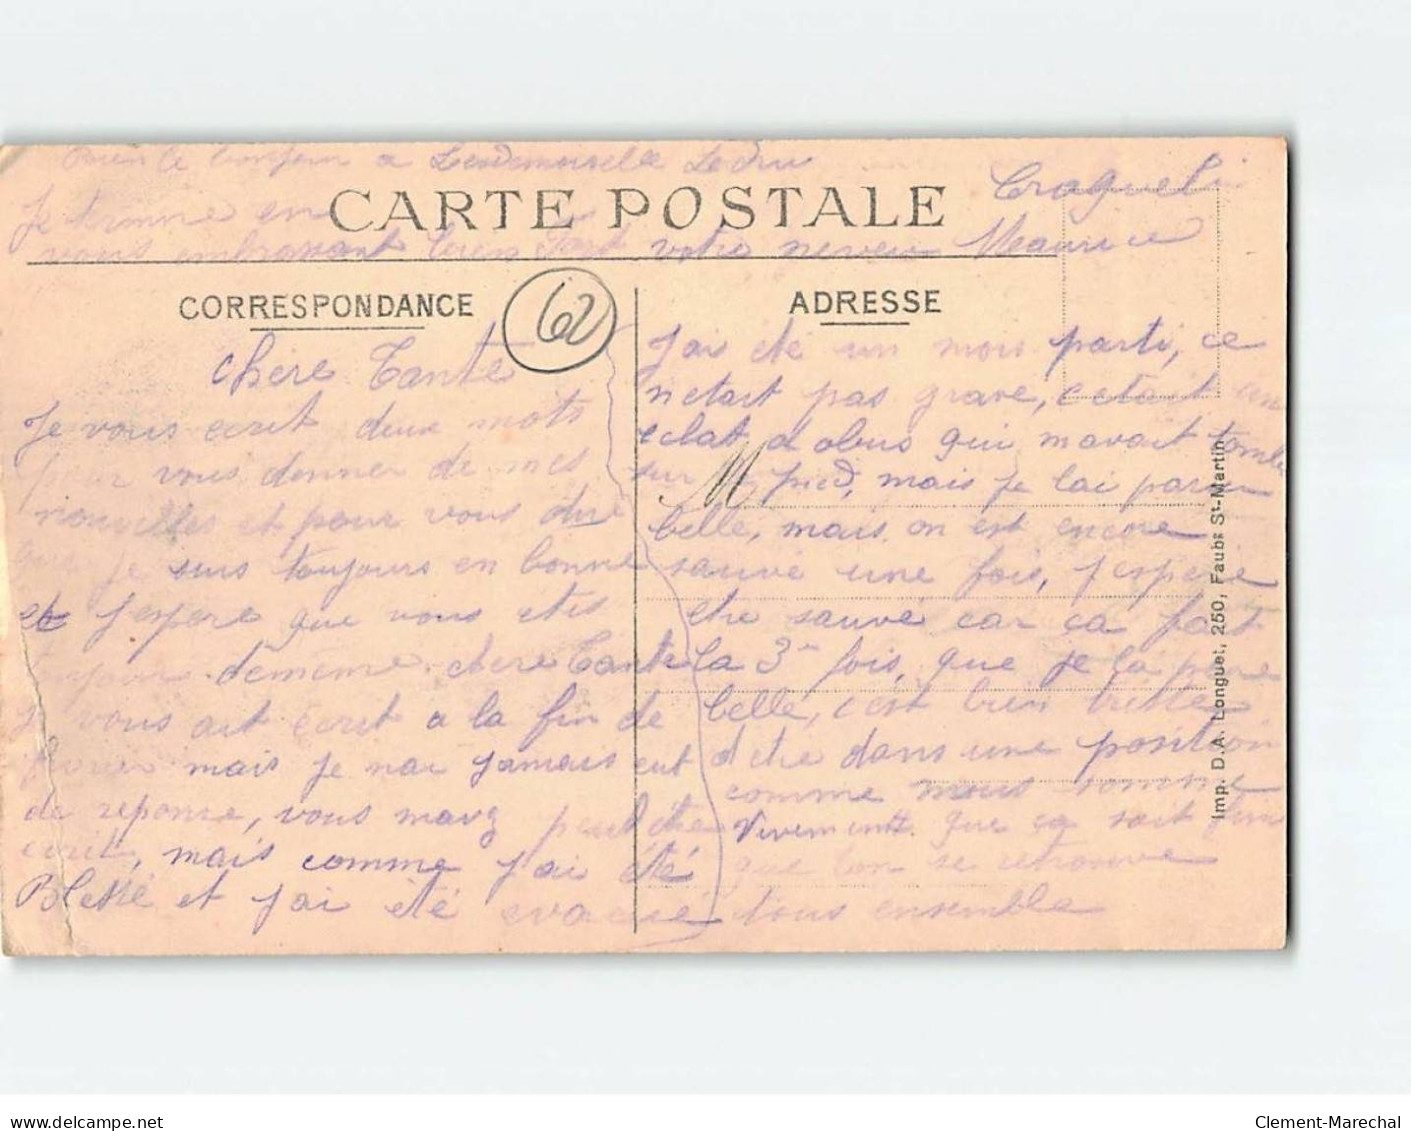 bien le bonjour a Lendemoiselle Ledru
CARTE POSTALE
Craguelin
Je termine en
vous embrassant bien fort votre neveu Maurice
CORRESPONDANCE
62
ADRESSE
Chère Tante
Je vous ecrit deux mots
pour vous donner de mes
nouvelles et pour vous dire
que je suis toujours en bonne
et j'espere que vous etes
toujours de meme. chere Tante
Je vous ait ecrit a la fin de
fevrier mais je nai jamais eut
de reponse, vous mavez peut etre
ecrit, mais comme j'ai été
Blessé et j'ai été evacué
J'ai été un mois parti, ce
n'etait pas grave, c'etait un
eclat d'obus qui m'avait tombé
sur le pied, mais je l'ai parer
belle, mais on est encore
sauvé une fois, j'espere
etre sauvé car ça fait
la 3me fois, que je la pare
belle, c'est bien triste
d'etre dans une position
comme nous somme
Vivement que ça soit fini
que l'on se retrouve
tous ensemble
M
Imp. D.A. Longuet, 250, Faubg St-Martin
delcampe.net
Clement-Marechal